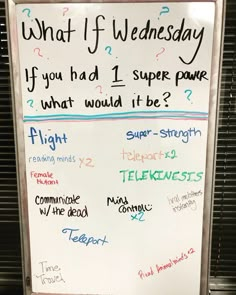 What If Wednesday
If you had 1 super power
what would it be?
flight
super-strength
reading minds x2
teleport x2
Female
Mutant
TELEKINESIS
Communicate
w/ the dead
Mind
Control
x2
Teleport
Time
Travel
x2